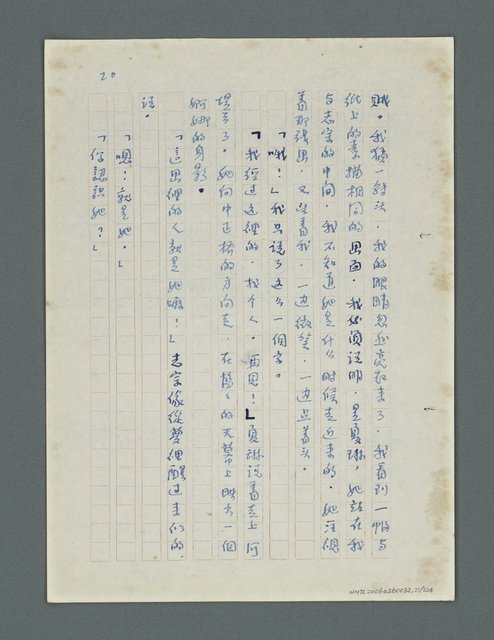 20
賊。我猶一轉头，我的眼睛忽然亮起来了，我看到一幅与
紙上的素描相同的畫面，我必須証明，是夏琳，她站在我
与志宗的中间，我不知道她是什么时候走近来的。她注視
着那張畫，又望着我，一边微笑，一边点着头。
「哦！」我只說了这么一個字。
「我經过这裡的，找个人。再見！」夏琳说着走上河
堤去了。她向中正橋的方向走，在藍色的天幕上映出一個
婀娜的身影。
「這畫裡的人就是她嘛！」志宗像從夢裡醒过来似的，
說。
「嗯！就是她。」
「你認識她？」
NMTL20060260032,21/224